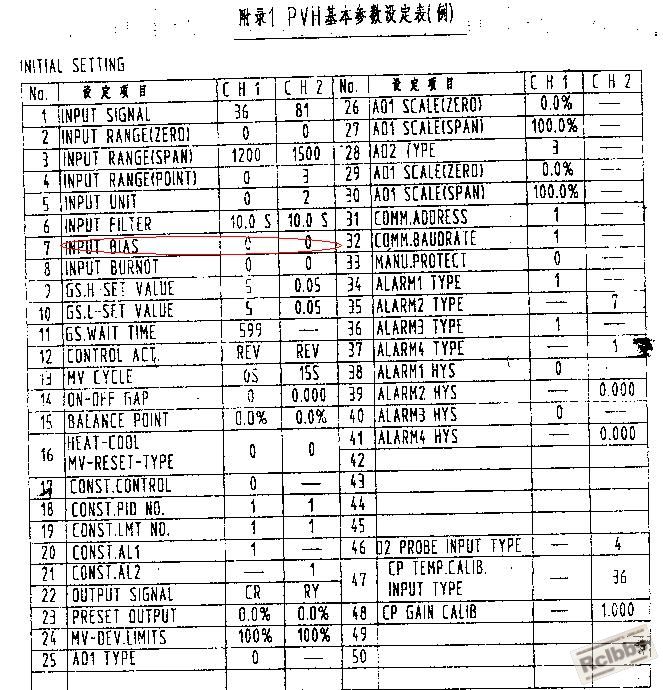 附录1 PVH基本参数设定表(例)
INITIAL SETTING
No. 设定项目 CH1 CH2
1 INPUT SIGNAL 36 81
2 INPUT RANGE(ZERO) 0 0
3 INPUT RANGE(SPAN) 1200 1500
4 INPUT RANGE(POINT) 0 3
5 INPUT UNIT 0 2
6 INPUT FILTER 10.0 S 10.0 S
7 INPUT BIAS 0 0
8 INPUT BURNOT 0 0
9 GS.H-SET VALUE 5 0.05
10 GS.L-SET VALUE 5 0.05
11 GS.WAIT TIME 599 —
12 CONTROL ACT. REV REV
13 MV CYCLE 0S 15S
14 ON-OFF GAP 0 0.000
15 BALANCE POINT 0.0% 0.0%
16 HEAT-COOL
MV-RESET-TYPE 0 0
17 CONST.CONTROL 0 —
18 CONST.PID NO. 1 1
19 CONST.LMT NO. 1 1
20 CONST.AL1 1 —
21 CONST.AL2 — 1
22 OUTPUT SIGNAL CR RY
23 PRESET OUTPUT 0.0% 0.0%
24 MV-DEV.LIMITS 100% 100%
25 AO1 TYPE 0 —
No. 设定项目 CH1 CH2
26 AO1 SCALE(ZERO) 0.0% —
27 AO1 SCALE(SPAN) 100.0% —
28 AO2 TYPE 3 —
29 AO1 SCALE(ZERO) 0.0% —
30 AO1 SCALE(SPAN) 100.0% —
31 COMM.ADDRESS 1 —
32 COMM.BAUDRATE 1 —
33 MANU.PROTECT 0 —
34 ALARM1 TYPE 1 —
35 ALARM2 TYPE — 7
36 ALARM3 TYPE 1 —
37 ALARM4 TYPE — 1
38 ALARM1 HYS 0 —
39 ALARM2 HYS — 0.000
40 ALARM3 HYS 0 —
41 ALARM4 HYS — 0.000
42
43
44
45
46 O2 PROBE INPUT TYPE — 4
47 CP TEMP.CALIB.
INPUT TYPE — 36
48 CP GAIN CALIB — 1.000
49
50